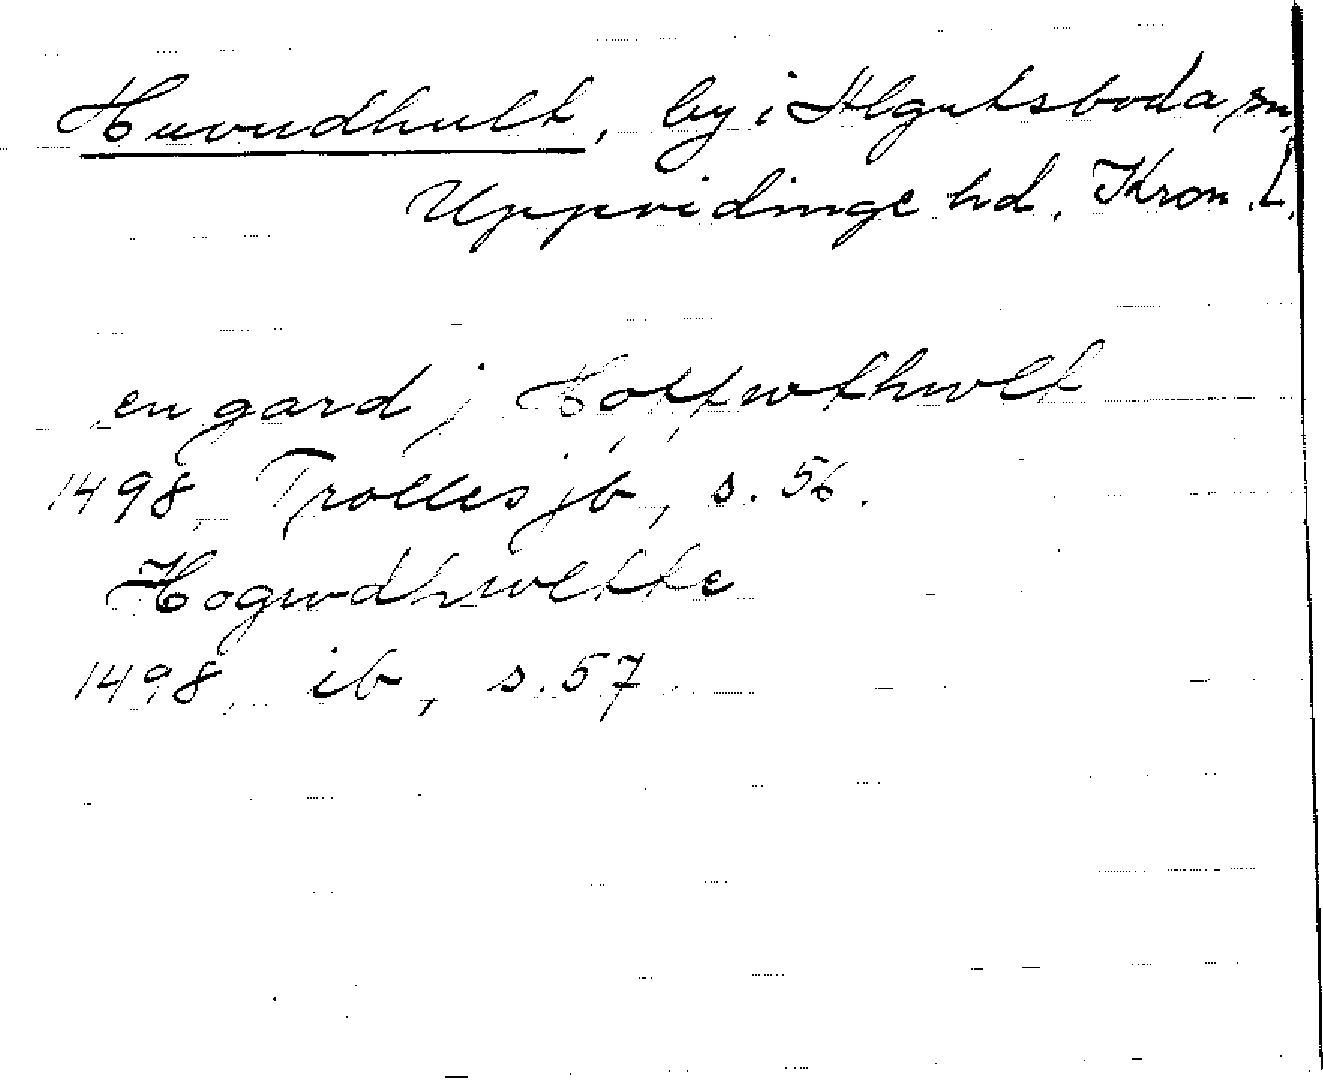 Huvudhult, by i Älgutsboda sn,
Uppvidinge hd, Kron. L.
en gard j Hoffwthwlt
1498, Trolles jb, s. 56.
Hogwdhwltte
1498, ib, s. 57